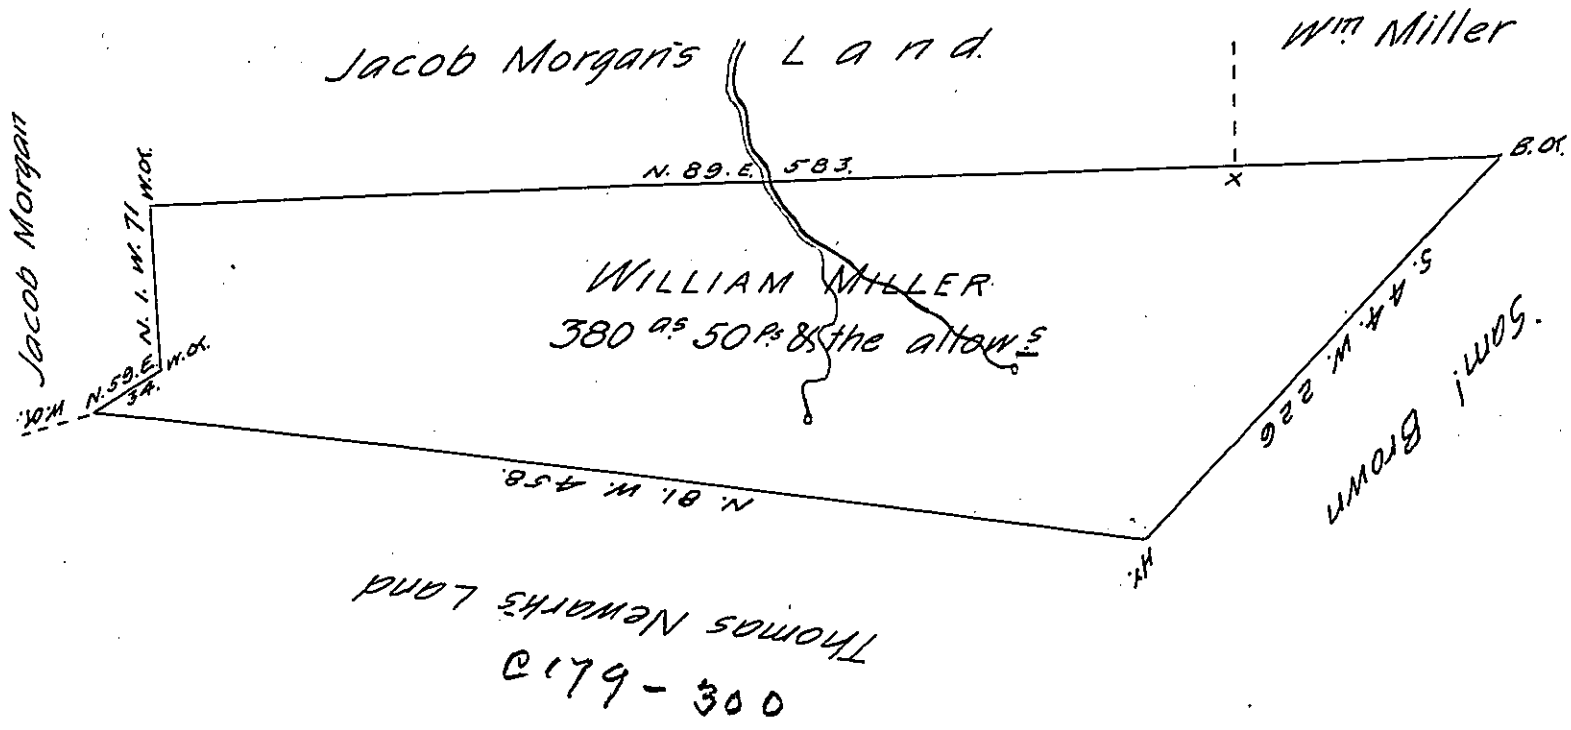 Jacob Morgan's Land.
Wm Miller
Jacob Morgan
W.O.
N. 89. E. 583.
B.O.
x
N. 1. W. 71
WILLIAM MILLER
380 as 50 Ps & the allows
S. 44. W. 226
Saml Brown
N. 59. E.
34.
W.O.
W.O.
N. 81. W. 458.
Hy.
Thomas Newark's Land
C179-300